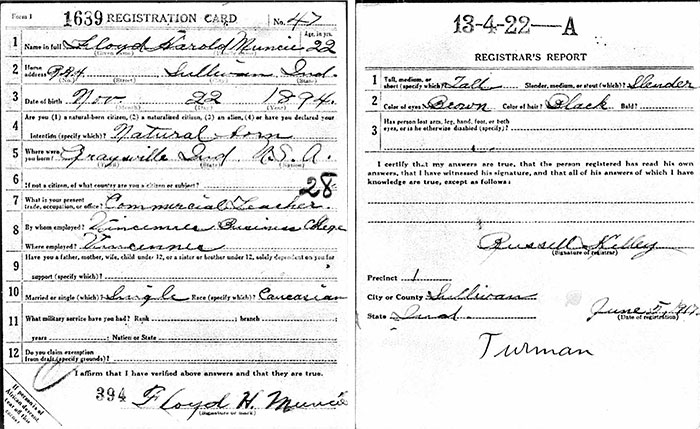 Form 1 1639 REGISTRATION CARD No. 47
1 Name in full Floyd Harold Muncie 22 Age, in yrs.
(Given name) (Family name)
2 Home address Sullivan Ind.
(No.) (Street) (City) (State)
3 Date of birth Nov 22 1894
(Month) (Day) (Year)
4 Are you (1) a natural-born citizen, (2) a naturalized citizen, (3) an alien, (4) or have you declared your
intention (specify which)? Natural born
5 Where were you born? Graysville Ind U.S.A.
(Town) (State) (Nation)
6 If not a citizen, of what country are you a citizen or subject?
28
7 What is your present trade, occupation, or office? Commercial Teacher
8 By whom employed? Vincennes Business College
Where employed? Vincennes
9 Have you a father, mother, wife, child under 12, or a sister or brother under 12, solely dependent on you for
support (specify which)?
10 Married or single (which)? Single Race (specify which)? Caucasian
11 What military service have you had? Rank ; branch ;
years ; Nation or State
12 Do you claim exemption from draft (specify grounds)?
I affirm that I have verified above answers and that they are true.
394 Floyd H. Muncie
(Signature or mark)
If person is of
African descent,
tear off this
corner
13-4-22-A
REGISTRAR'S REPORT
1 Tall, medium, or short (specify which)? Tall Slender, medium, or stout (which)? Slender
2 Color of eyes? Brown Color of hair? Black Bald?
3 Has person lost arm, leg, hand, foot, or both
eyes, or is he otherwise disabled (specify)?
I certify that my answers are true, that the person registered has read his own
answers, that I have witnessed his signature, and that all of his answers of which I have
knowledge are true, except as follows:
Russell Kelley
(Signature of registrar)
Precinct 1
City or County Sullivan
State Ind June 5, 1917
(Date of registration)
Turman